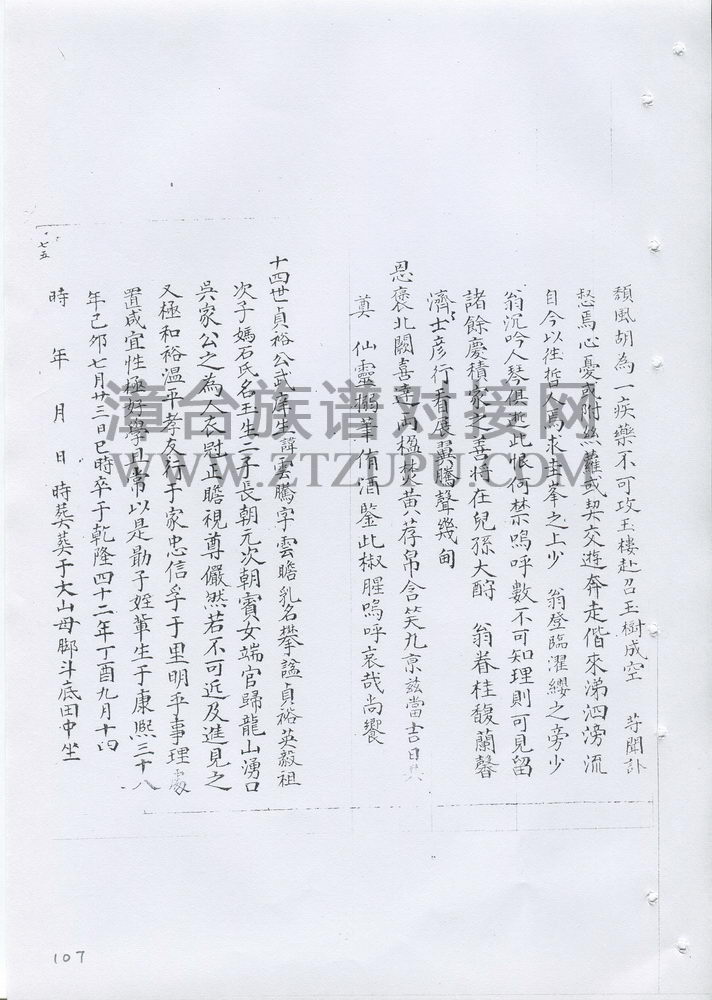 頹風胡為一疾藥不可攻玉樓赴召玉樹成空 䓁聞訃
愁焉心憂或附絲蘿或契交遊奔走偕來涕泗滂流
自今以往哲人焉求圭峯之上少 翁登臨濯纓之旁少
翁沉吟人琴俱逝此恨何禁嗚呼數不可知理則可見留
諸餘慶積家之善將在兒孫大酧 翁眷桂馥蘭馨
濟士彥行看展翼騰聲幾甸
恩褒北闕喜達兩楹焚黃荐帛含笑九京茲當吉日
奠 仙靈搦筆侑酒鑒此椒腥嗚呼哀哉尚饗
十四世貞裕公武庠生諱雲騰字雲瞻乳名攀諡貞裕英毅祖
次子媽石氏名玉生二子長朝元次朝賓女端官歸龍山湧口
吳家公之為人衣冠正瞻視尊儼然若不可近及進見之
又極和裕溫平孝友行于家忠信孚于里明乎事理處
置咸宜性極好學且常以是勗子姪輩生于康熙三十八
年己卯七月廿三日巳時卒于乾隆四十二年丁酉九月十四
時 年 月 日 時葬葬于大山母腳斗底田中坐
七五
漳台族谱对接网
WWW.ZTZUPU.COM
107